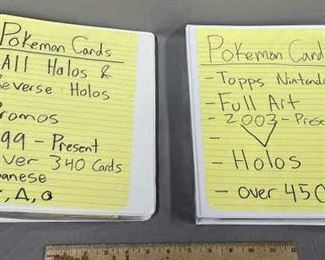 Pokemon Cards
All Holos &
Reverse Holos
Promos
99 - Present
over 340 Cards
panese
Pokemon Card
- Topps Nintendo
- Full Art
- 2003 - Prese
-
- Holos
- over 450